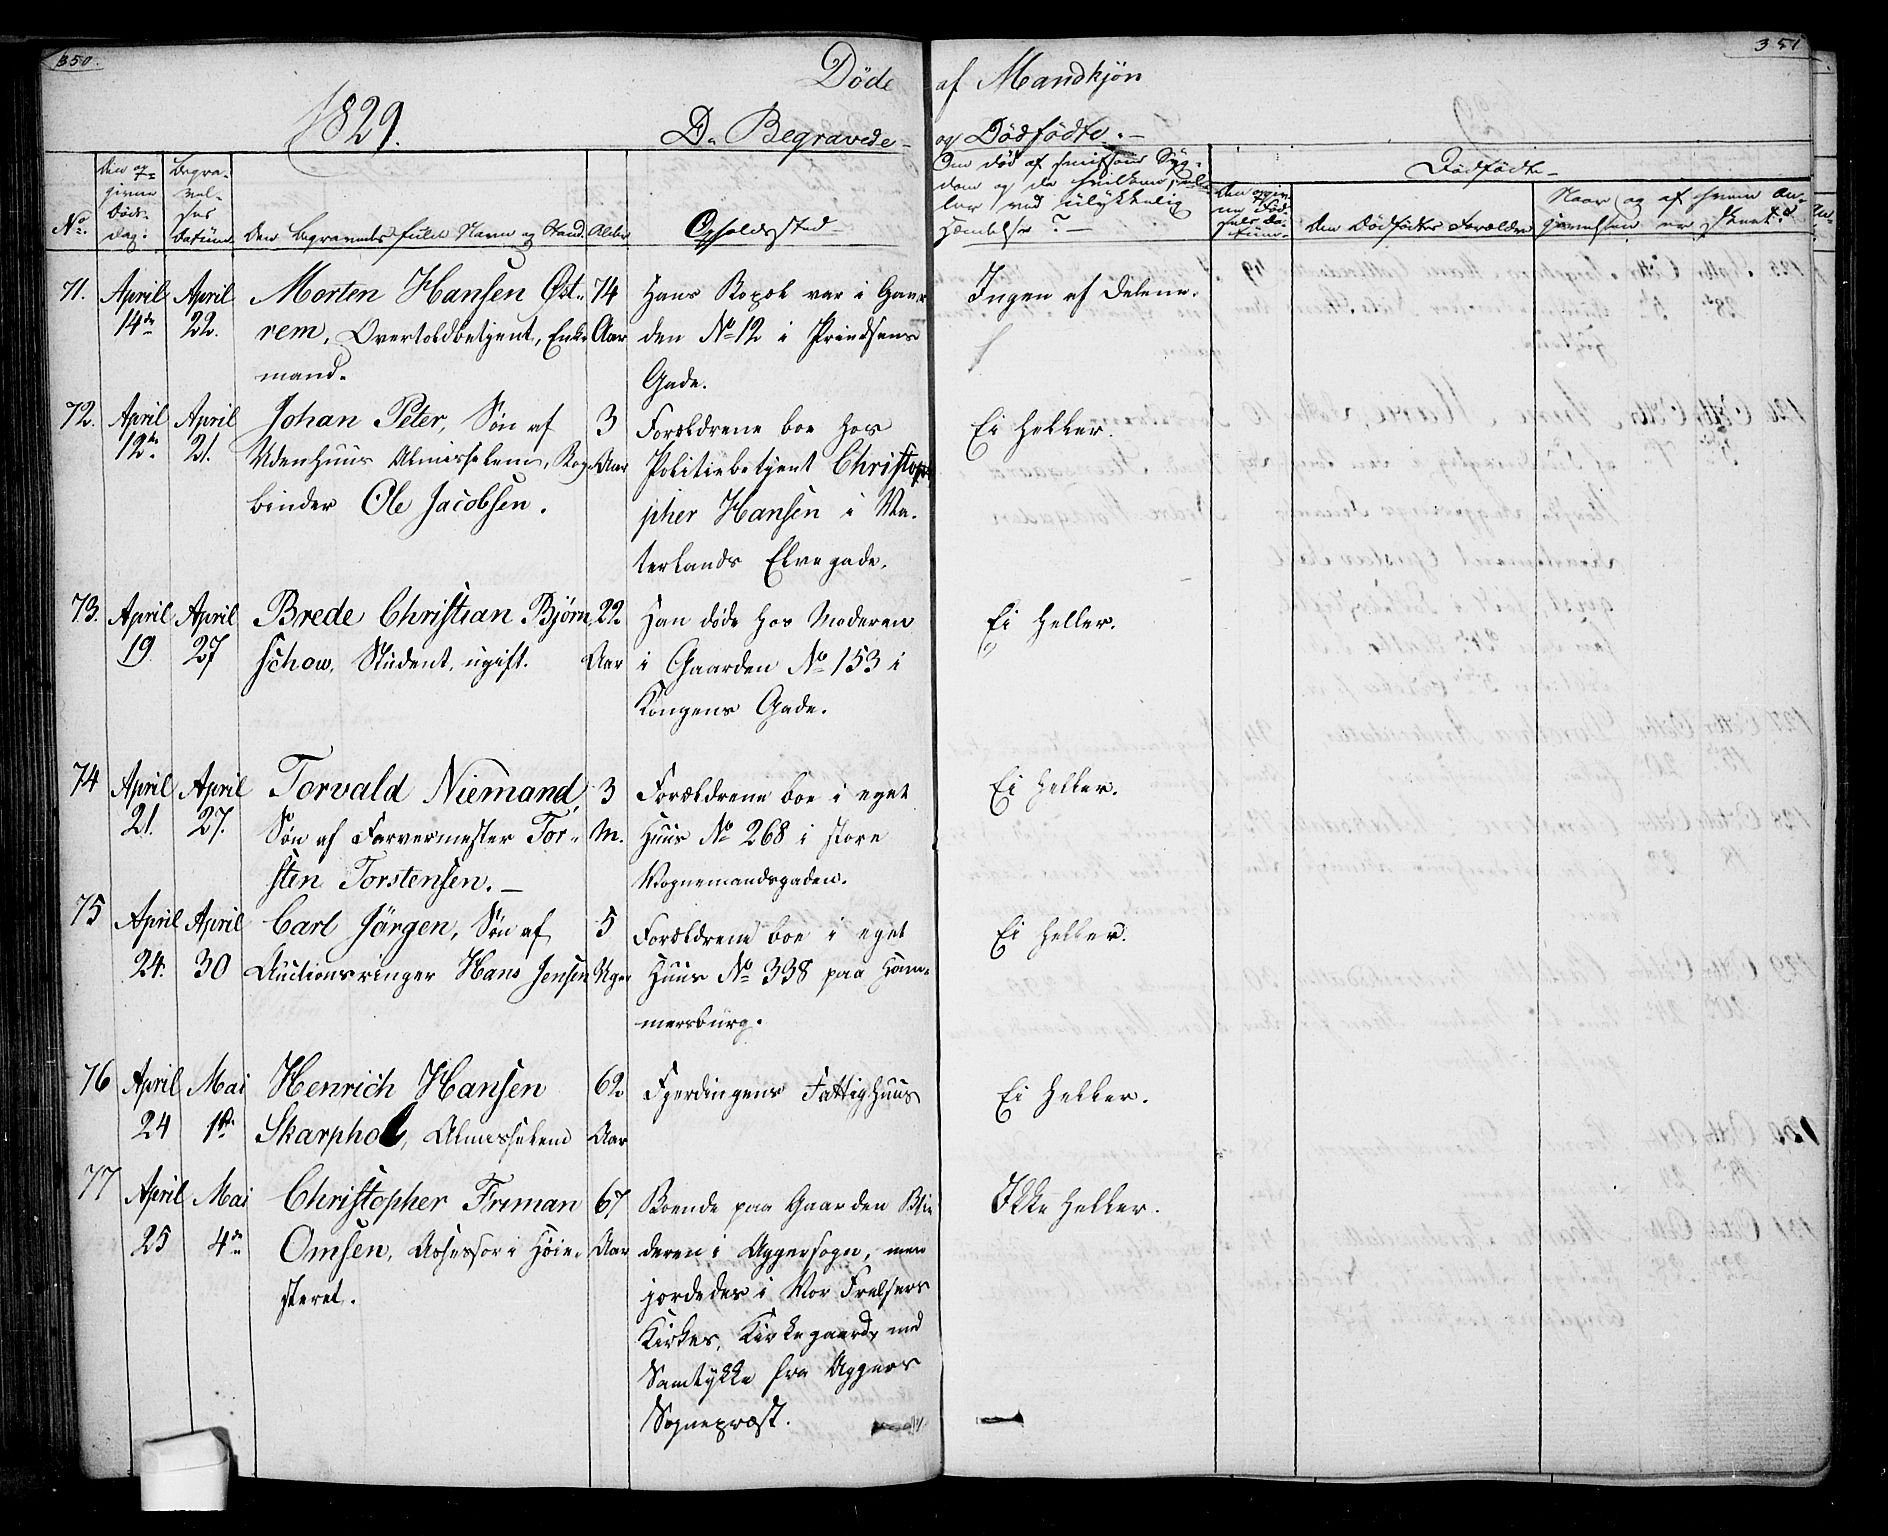 350.
351
1829.
Døde af Mandkjøn
Do Begravede og Dødfødte.
No.
Den op-
givne
Døds-
dag.
Begra-
vel-
ses
Datum.
Den Begravedes fulde Navn og Stand.
Alder
Opholdssted
Om død af smitsom Syg-
dom og da hvilken, el-
ler ved ulykkelig
Hændelse?
Dødfødte
Den Dødfødtes Forældre
Naar og af hvem An-
givelsen er skeet?
71.
April
14de
April
22.
Morten Hansen Øst-
rem, Overtoldbetjent, Enke-
mand.
74
Aar
Hans Bopæl var i Gaar-
den No 12 i Prindsens
Gade.
Ingen af Delene.
72.
April
12te
April
21.
Johan Peter, Søn af
Udenhuus Almisselem, Bog-
binder Ole Jacobsen.
3
Aar
Forældrene boe hos
Politiebetjent Christop-
pher Hansen i Va-
terlands Elvegade.
Ei heller.
73.
April
19
April
27
Brede Christian Bjørn
Schow, Student, ugift.
22
Aar
Han døde hos Moderen
i Gaarden No 153 i
Kongens Gade.
Ei heller.
74
April
21.
April
27.
Torvald Niemand,
Søn af Farvermester Tor-
sten Torstensen.
3
M.
Forældrene boe i eget
Huus No 268 i store
Vognemandsgaden.
Ei heller.
75
April
24.
April
30
Carl Jörgen, Søn af
Auctionsringer Hans Jensen
5
Uger
Forældrene boe i eget
Huus No 338 paa Ham-
mersburg.
Ei heller.
76
April
24
Mai
1ste
Henrich Hansen
Skarphol, Almisselem
62
Aar
Fjerdingens Fattighuus
Ei heller.
77
April
25
Mai
4de
Christopher Friman
Omsen, Assessor i Høie-
steret.
67
Aar
Boende paa Gaarden Blin
deren i Aggersogn, men
jordedes i Vor Frelsers
Kirkes, Kirkegaard, med
Samtykke fra Aggers
Sognepræst.
Ikke heller.